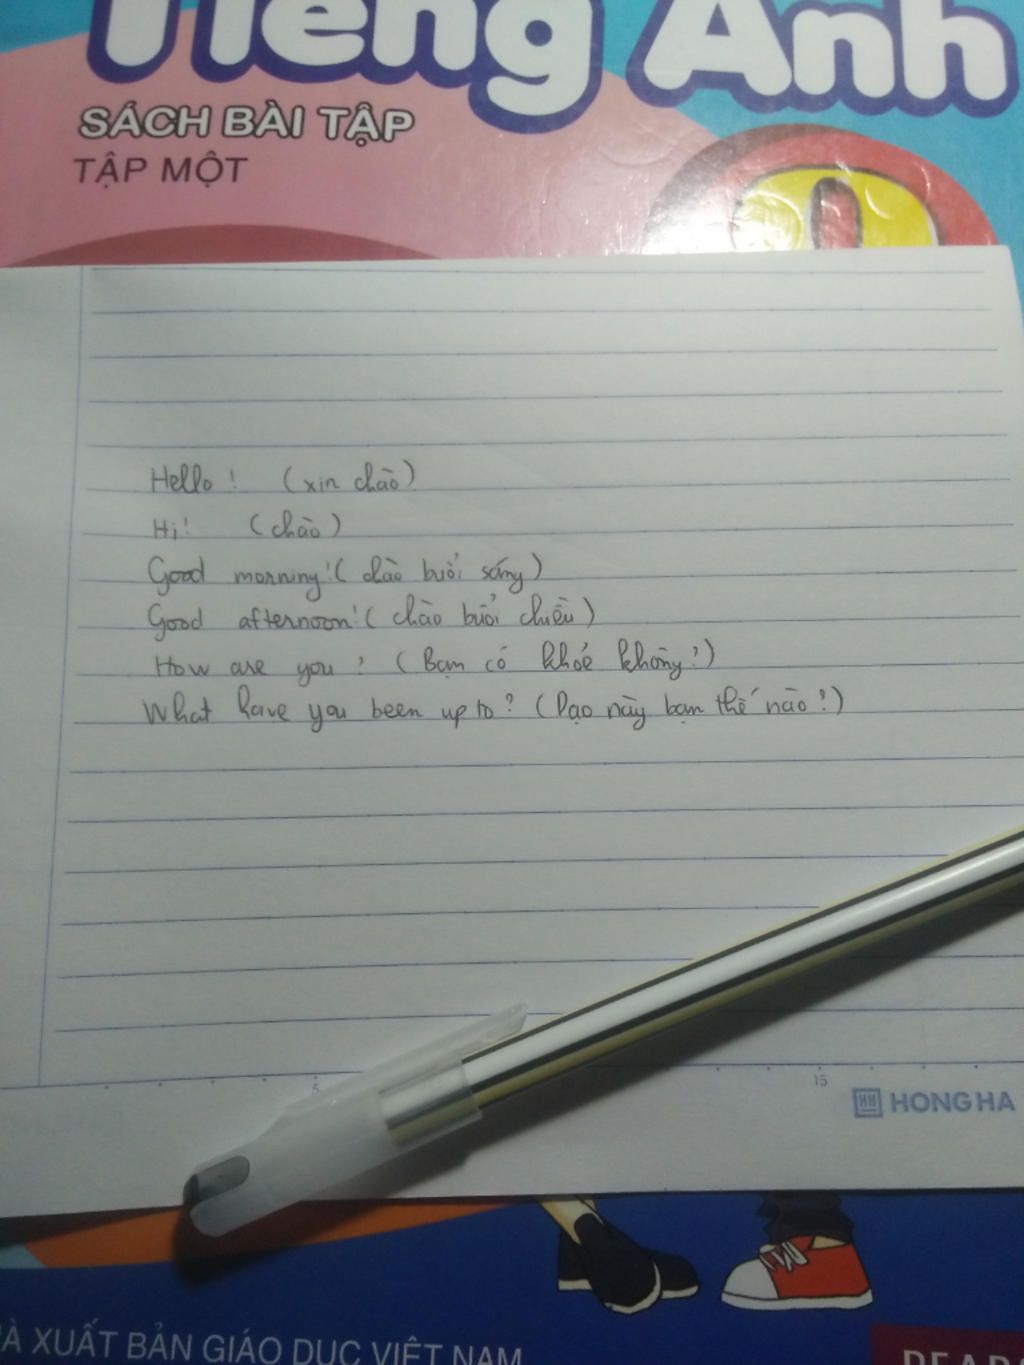 Tiếng Anh
SÁCH BÀI TẬP
TẬP MỘT
Hello! (xin chào)
Hi! (chào)
Good morning! (chào buổi sáng)
Good afternoon! (chào buổi chiều)
How are you? (Bạn có khoẻ không?)
What have you been up to? (Dạo này bạn thế nào?)
5 15
HONG HA
XUẤT BẢN GIÁO DỤC VIỆT NAM